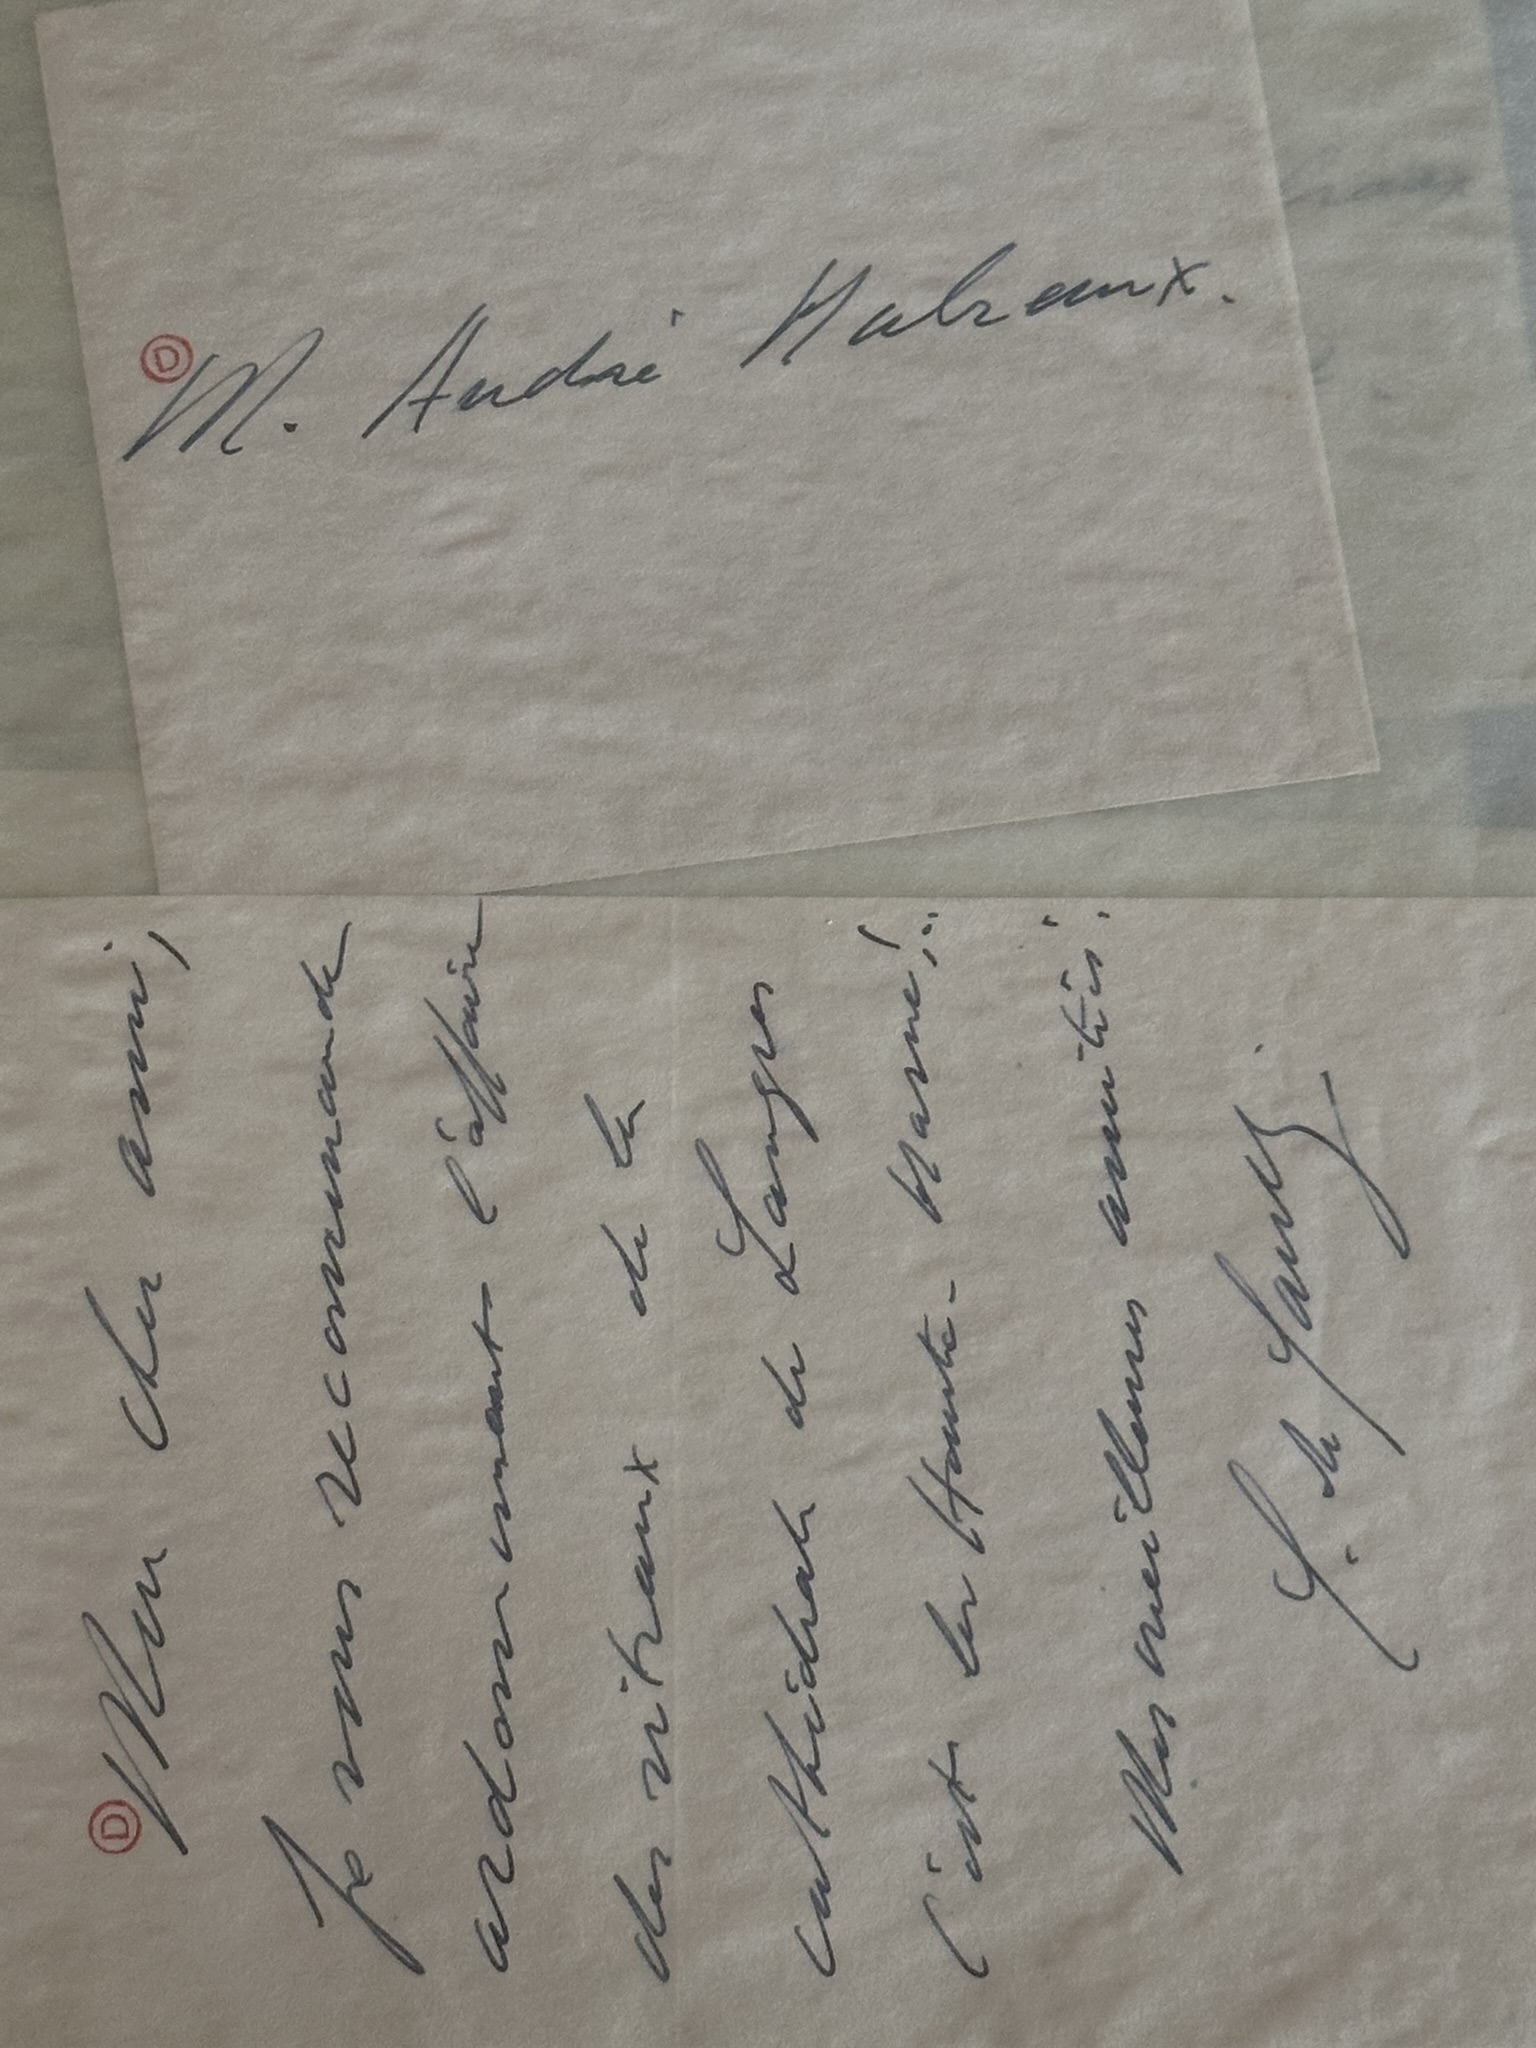 M. André Malraux.
Mon cher ami,
Je vous recommande
ardemment l'affaire
des vitraux de la
cathédrale de Langres
(c'est la Haute-Marne!).
Mes meilleures amitiés.
G. de Gaulle